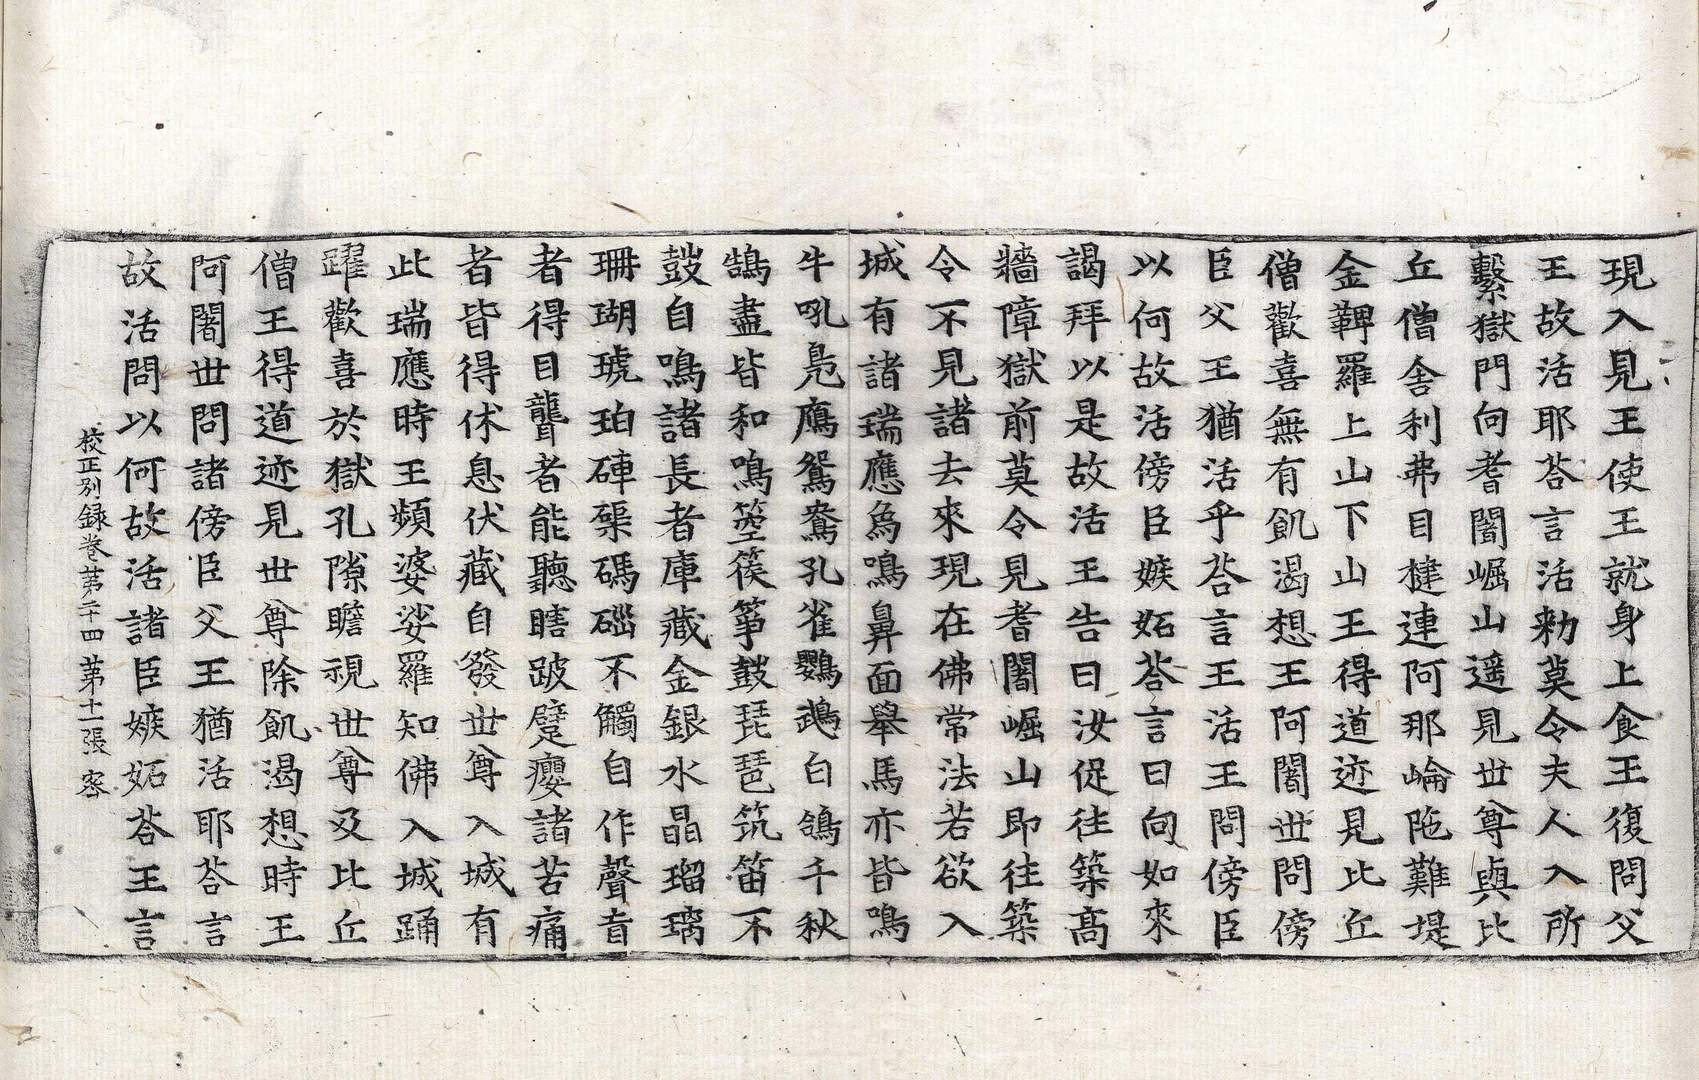 現入見王使王就身上食王復問父
王故活耶荅言活勑莫令夫人入所
繫獄門向耆闍崛山遥見世尊與比
丘僧舎利弗目揵連阿那崘陁難堤
金鞞羅上山下山王得道迹見比丘
僧歡喜無有飢渴想王阿闍世問傍
臣父王猶活乎荅言王活王問傍臣
以何故活傍臣嫉妬荅言曰向如來
謁拜以是故活王告曰汝促往築髙
牆障獄前莫令見耆闍崛山即往築
令不見諸去來現在佛常法若欲入
城有諸瑞應為鳴鼻面舉馬亦皆鳴
牛吼鳬鴈鴛鴦孔雀鸚鵡白鴿千秋
鵠盡皆和鳴箜篌筝鼓琵琶筑笛不
鼓自鳴諸長者庫藏金銀水晶瑠璃
珊瑚琥珀硨磲碼碯不觸自作聲盲
者得目聾者能聽瞎跛躄癭諸苦痛
者皆得休息伏藏自發世尊入城有
此瑞應時王頻婆娑羅知佛入城踊
躍歡喜於獄孔隙瞻視世尊及比丘
僧王得道迹見世尊除飢渴想時王
阿闍世問諸傍臣父王猶活耶荅言
故活問以何故活諸臣嫉妬荅王言
校正别録卷苐二十四 苐十一張 宻